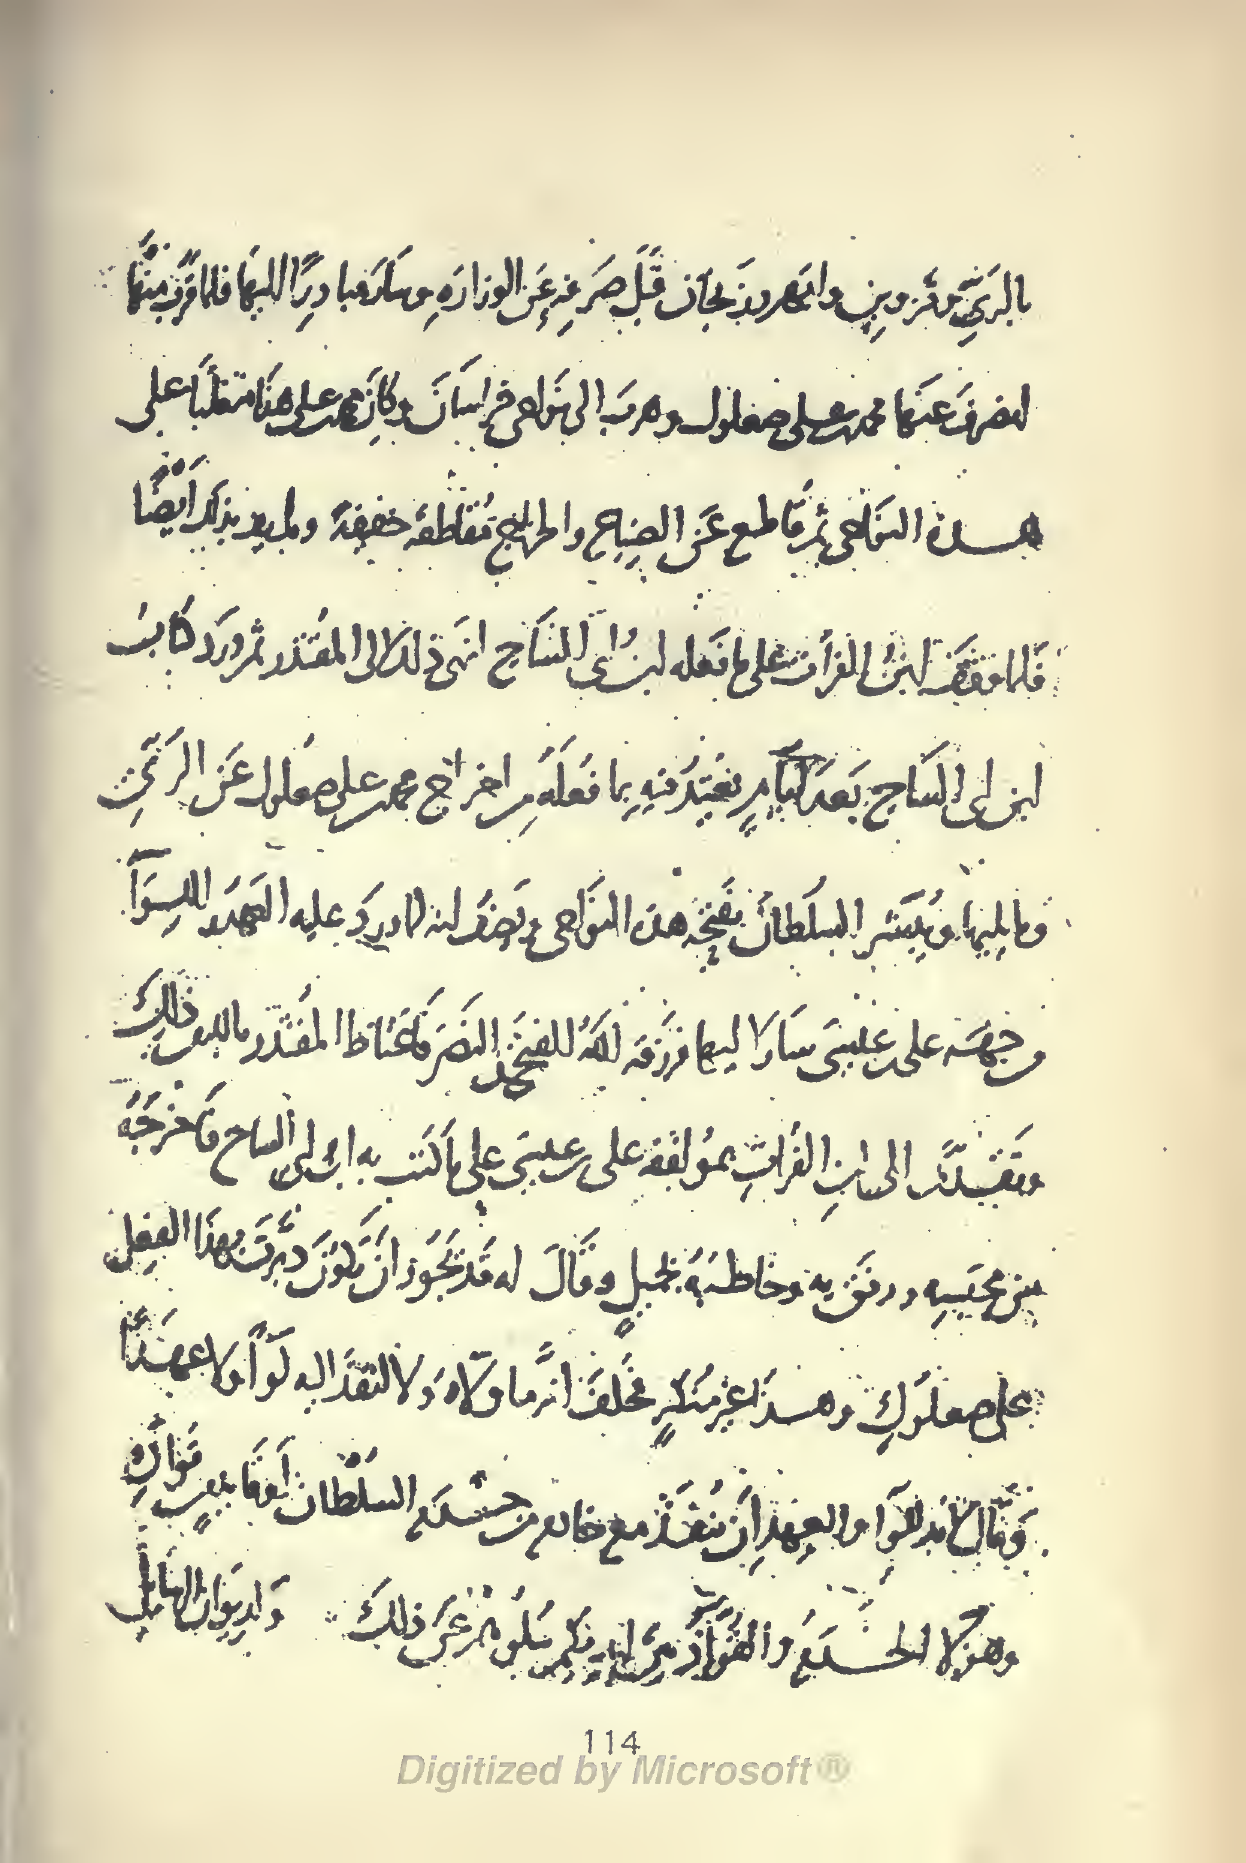 بالرَيّ وقزوين وابهر وزنجان قَبْلَ صَرفِهِ عَن الوزارَةِ وسَارَ مبادِرًا اليهَا فلما قَرُبَ مِنْهَا
انصرفَ عنَها محمد بن على صعلوك وهربَ الى نوَاحى خراسَانَ وكانَ محمد بن على هذَا متغلّبًا على
هـذه النوَاحى ثم قَاطع عَن الضِيَاع والخراج مُقَاطعَةً خفيفةً ولم يفِ بذلك اَيضًا
فَلما وقَفَ ابنُ الفرات على ما فَعله ابن اَبى السَّاج انهَى ذلك الى المقتَدر ثم ورَدَ كتَابُ
ابن ابى السَّاج بَعدَ ايَّامٍ يَعْتدُّ فيهِ بِما فَعلَهُ مِن اخرَاج محمد بن على صعلوك عَن الرَيّ
وما يليها ويُبَشر السلطانَ بفَتح هذه النوَاحى ويَصِفُ انه لما ورَدَ عليه العَهْد واللِّوَآ
من جهَة على بن عيسَى سَارَ اليها فرزقَه اللهُ الفتحَ والنصْرَ فاغتَاظ المقتَدر بالله من ذلِكَ
وتقَدَّمَ الى ابن الفُراتِ بموَاقَفة على بن عيسَى على ما كَتَبَ به ابن ابى السَاج فاَخْرجَهُ
من محبَسِهِ ورفَق به وخَاطبَهُ بجَميلٍ وقَالَ له قَد يَجُوز اَن يَكونَ دَبَّرتَ بهذَا الفِعْلِ
على صعلوكٍ وهـذَا غير مُنكَرٍ فحَلفَ انّه ما ولّاهُ وَلا انفَذَ اليه لوَآءً ولا عهدًا
وقَالَ لا بُدَّ للّوَآ والعهدِ اَن يُنفَذَ مع خادمٍ من خَـدَم السُلطان اَو قَائدٍ من قوّادِهِ
وهؤلا الخـدَمُ والقوَّادُ بين ايديكم سَلوهُم عَن ذلكَ وَلِديوَان الرسَائل
114
Digitized by Microsoft ®